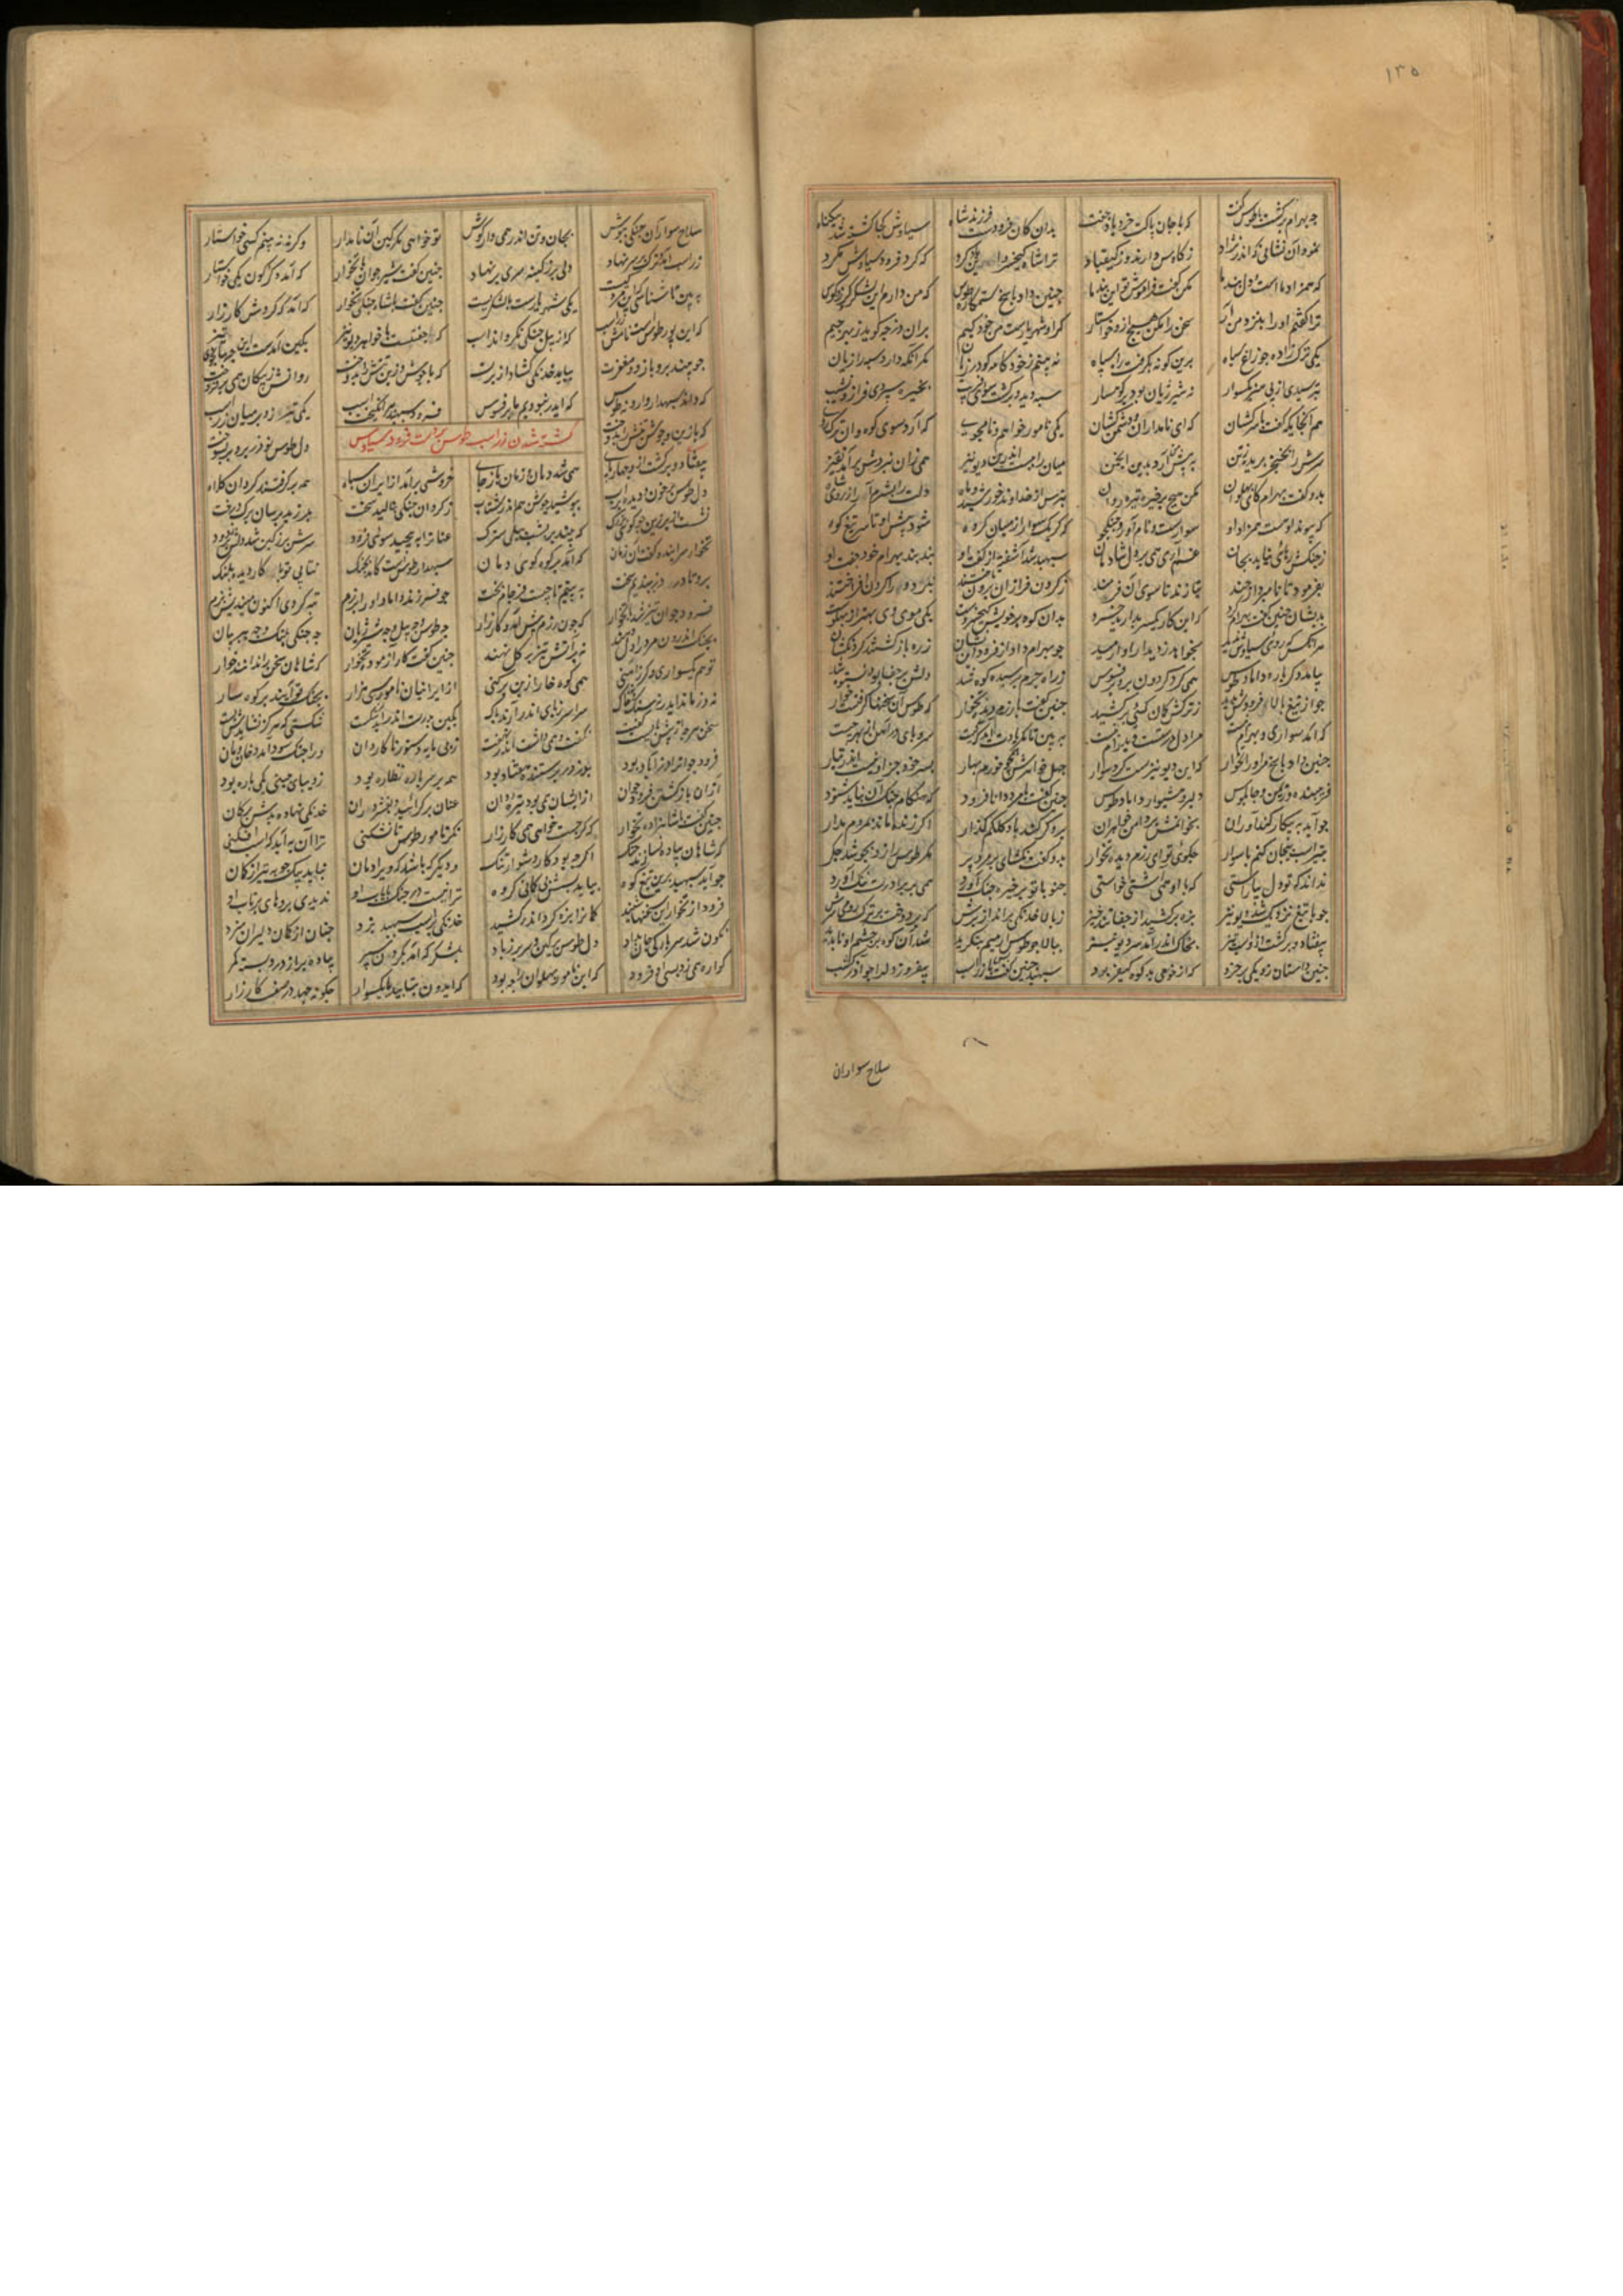 ۱۳۵
چو بهرام برگشت با طوس گفت که با جان پاکت خرد باد جفت بدان کان فرودست فرزند شاه سیاوش کجا کشته شد بیگناه
نمود آن نشانی که اندر نژاد ز کاوس دارند و ز کیقباد ترا شاه کیخسرو اندرز کرد که گرد فرود سیاوش مگرد
که همزاد ما است دل بند ما مکن گفت فراموش تو این پند ما چنین داد پاسخ ستمکاره طوس که من دارم این لشکر و بوق و کوس
ترا گفتم او را بنزد من آر سخن را مکن هیچ ازو خواستار گر او شهریارست من خود کیم بران دز چه گوید ز بهر چیم
یکی ترک زاده چو زاغ سیاه برین گونه بگرفت راه سپاه نه بینم ز خودکامه گودرزیان مگر آنکه دارد سپه را زیان
بترسیدی از بی هنر یکسوار نه شیر ژیان بود بر کوهسار سپه دید و برگشت سوی فریب بخیره سپردی فراز و نشیب
هم آنجایگه گفت با سرکشان که ای نامداران و دشمن کشان یکی نامور خواهم و نامجوی که آرد سوی کوه و آن ترک
سرش را بخنجر ببرد ز تن به پیش من آرد بدین انجمن میان را ببست اندر آن ریونیز همی زان نبردش برآمد قفیز
بدو گفت بهرام کای پهلوان مکن هیچ برخیره تیره روان بترس از خداوند خورشید و ماه دلت را بشرم آر از روی شاه
که پیوند اوست همزاد او سوارست نام آور و جنگجو که گر یک سوار از میان گروه شود پیش او تا سر تیغ کوه
ز چنگش رهائی نیابد بجان غم آری همی بر دل شادمان سپهبد شد آشفته از گفت او نبد پند بهرام خود جفت او
بفرمود تا نامبردار چند بتازند تا سوی آن ز گردون فرازان برون تاختند نبرد ورا گردن افراختند
بدیشان چنین گفت بهرام گرد که این کار یکسر مدارید خرد بدان کوه بر خویش کیخسروست یکی موی وی بهتر از پهلوست
هر آنکس که روی سیاوش بدید نخواهد ز دیدار او آرمید چو بهرام داد از فرود آن نشان ز ره بازگشتند گردنکشان
بیامد دگر باره داماد طوس همی کرد گردون برو بر فسوس ز راه چرم بر سپدکوه شد دلش پر جفا بود نستوه شد
چو از تیغ بالا فرودش بدید ز ترکش کمان کئی برکشید چنین گفت با رزم دیده تخوار که طوس آن سخنها گرفتست خوار
که آمد سواری و بهرام نیست مرا دل درشتست و پدرام نیست ببین تا مگر یادت آید که کیست سروپای در آهن از بهر چیست
چنین داد پاسخ مر او را تخوار که این ریونیزست گرد سوار چهل خواهرستش چو خرم بهار پسر خود جز او نیست اندر تبار
فریبنده و ریمن و چاپلوس دلیر و هشیوار و داماد طوس چنین گفت با مرد دانا فرود که هنگام جنگ آن نباید شنود
چو آید به پیکار کنداوران بخوابمش بر دامن خواهران برو گر کشد باد کلکم گذار اگر زنده ماند بمردم مدار
بتیر اسب بیجان کنم یا سوار چگوئی تو ای رزم دیده تخوار بدو گفت بگشای بر مرد بر مگر طوس را زو بجوشد جگر
نداند که تو دل بیاراستی که با او همی آشتی خواستی چنو با تو بر خیره جنگ آورد همی بر برادرت ننگ آورد
چو با تیغ نزدیک شد ریونیز بزه برکشید از جفا تیر خیز ز بالا خدنگی بر انداز برش که بر دوخت بر ترک رومی سرش
بیفتاد و برگشت ازو اسب تیز بخاک اندر آمد سر ریونیز ببالا چو طوس از میم بنگرید شد آن کوه بر چشم او ناپدید
چنین داستان زد یکی پر خرد که از خوی بد کوه کیفر برد سپهبد چنین گفت با زراسب بیفروز دل را چو آذرگشسب
سلاح سواران
سلاح سواران جنگی بپوش بجان و تن اندر همی دار گوش تو خواهی مگر کین آن نامدار وگرنه نه بینم کسی خواستار
زراسب آمد و ترک بر سر نهاد دلی پر ز کینه سری پر ز باد چنین گفت شیر جوان با تخوار که آمد دگرگون یکی خواستار
ببین تا شناسی که این مرد کیست یکی شهریارست یا لشکریست چنین گفت با شاه جنگی تخوار که آمد گه گردش کارزار
که این پور طوسست نامش زراسب که از پیل جنگی نگرداند اسب که جفتست با خواهر ریونیز بکین آمدست این جهانجوی تیز
چو بیند بر و بازو و مغفرت بباید خدنگی گشاد از برت که با پوشش و زین تنش را بدوخت روانش ز پیکان همی برفروخت
که داند سپهدار وارونه طوس که ایدر نبودیم ما بر فسوس فرود سپهبد برانگیخت اسب یکی تیر زد بر میان زرسب
که با زین و جوشن تنش را بدوخت دل طوس نوذر برو بر بسوخت
کشته شدن زراسب طوس بر دست فرود سیاوس
بیفتاد و برگشت ازو چهارپای همی شد دمان و زمان باز جای خروشی برآمد از ایران سپاه همه برگرفتند گردان کلاه
دل طوس پر خون و دیده پر آب بپوشید جوشن هم اندر شتاب ز گردان جنگی بنالید سخت بلرزید برسان برگ درخت
نشست از بر زین چو کوهی بزرگ که بنهند بر پشت پیلی سترک عنانرا بپیچید سوی فرود سرش پر ز کین شد دلش پر ز دود
تخوار سراینده گفت آن زمان که آمد بر کوه کوهی دمان سپهدار طوسست کامد بجنگ نتابی تو با کار دیده پلنگ
برو تا در دز ببندیم سخت به بینیم تا چیست فرجام بخت چو فرزند و داماد او را برزم تبه کردی اکنون میندیش بزم
فرود جوان تیز شد با تخوار که چون رزم پیش آید و کارزار چه طوس و چه پیل و چه شیر ژیان چه جنگی پلنگ و چه ببر بیان
بجنگ اندرون مرد را دل دهند نه بر آتش تیز بر گل نهند چنین گفت کارآزموده تخوار که شاهان سخن را ندارند خوار
تو هم یکسواری و گر ز آهنی همی کوه خارا ز بن برکنی از ایرانیان نامور سی هزار بجنگ تو آیند بر کوهسار
نه دز ماند ایدر نه سنگ و نه خاک سراسر ز پای اندر آرند پاک بکین پدرت اندر آید شکست شکستی که هرگز نشایدش بست
سخن هرچه از پیش بایست گفت نگفت و همی داشت اندر نهفت ز بی مایه دستور ناکاردان ورا جنگ سود آمد و جان زیان
فرود جوانرا دز آباد بود بدز در پرستنده هفتاد بود همه بر سر باره نظاره بود ز دیبای چینی یکی باره بود
از آن بازگشتن فرود جوان از ایشان همی بود تیره روان عنان برگرائید و بفشرد ران خدنگی نهاده به پیش کمان
چنین گفت با شاهزاده تخوار که گر جست خواهی همی کارزار نگر نامور طوس تا نشکنی ترا آن به آید که اسب افکنی
که شاهان پیاده نسازند جنگ اگرچه بود کار دشوار و تنگ و دیگر که باشد که ویرا دمان نیاید بیک چوبه تیر از کمان
چو آید سپهبد برین تیغ کوه بیاید پسش بی گمان گروه ترا نیست در جنگ پایاب او ندیدی بروهای پرتاب او
فرود از تخوار این سخنها شنید کمانرا بزه کرد و اندر کشید خدنگی بر اسب سپهبد بزد چنان از کمان دلیران سزد
نگون شد سر بارگی جان بداد دل طوس پر کین و سر پر ز باد بلشکرگه آمد بگردن سپر پیاده پر از درد و بسته کمر
گواژه همی زد پسی فرود که این نامور پهلوان را چه بود که ایدون بتابید با یکسوار چگونه جهد در صف کارزار